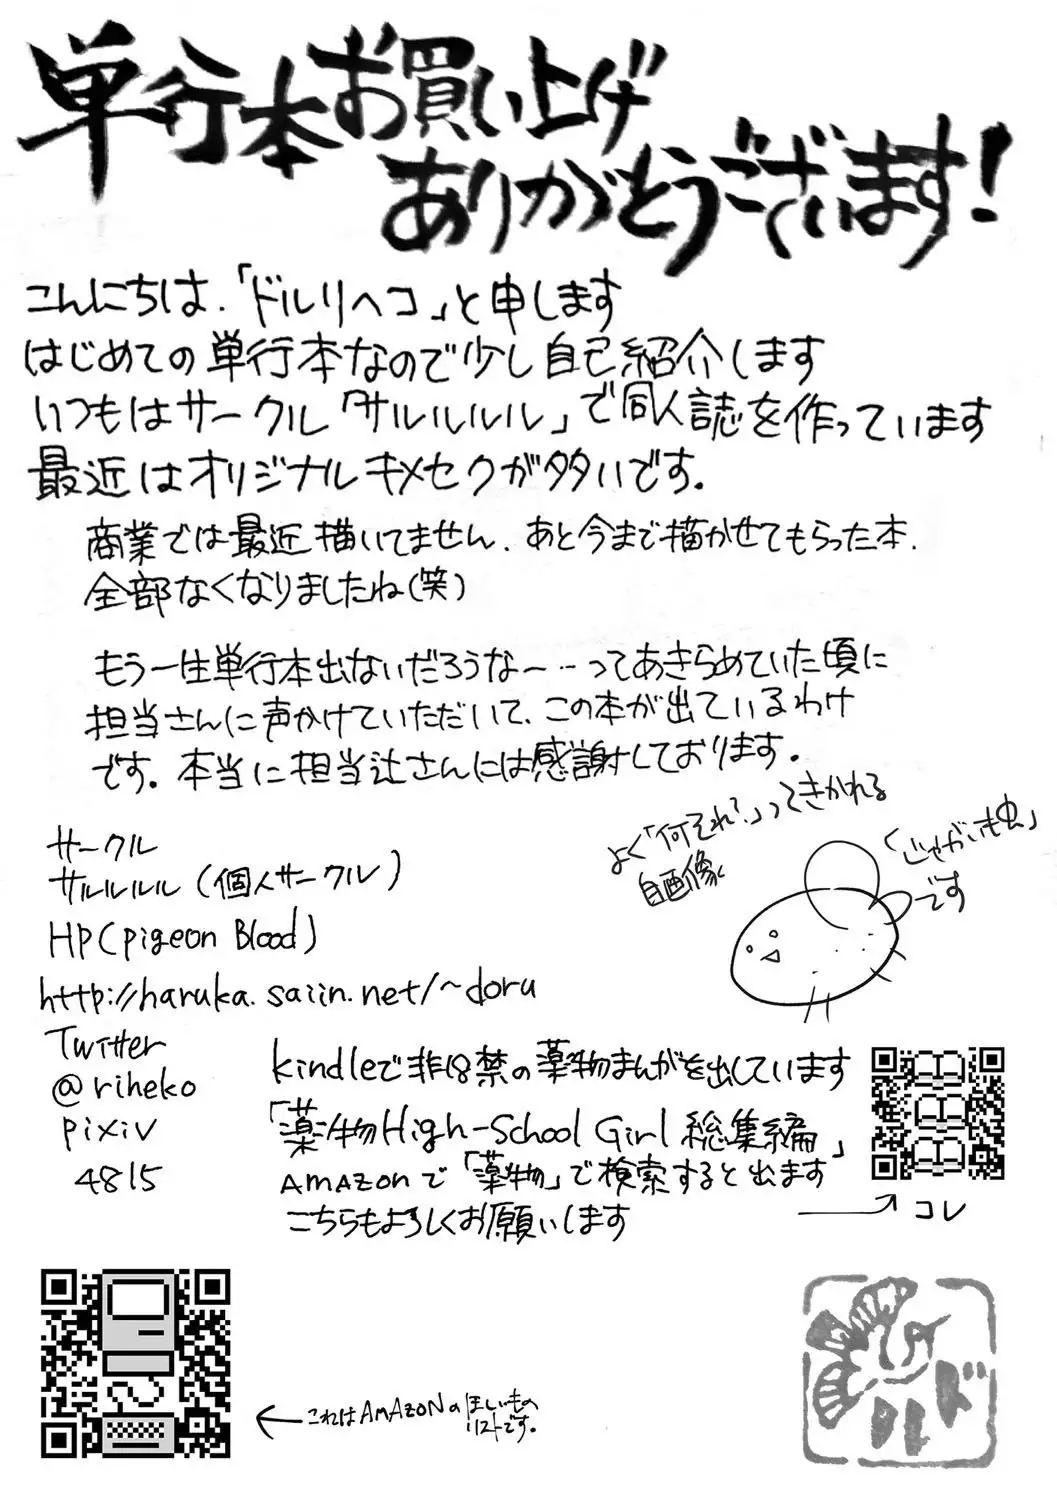 単行本お買い上げ
ありがとうございます!
こんにちは、「ドルリヘコ」と申します
はじめての単行本なので少し自己紹介します
いつもはサークル「サルルルル」で同人誌を作っています
最近はオリジナルキメセクが多いです。
商業では最近描いてません、あと今まで描かせてもらった本、
全部なくなりましたね(笑)
もう一生単行本出ないだろうな〜…ってあきらめていた頃に
担当さんに声かけていただいて、この本が出ているわけ
です。本当に担当辻さんには感謝しております。
よく「何それ?」ってきかれる
自画像
「じゃがいも虫」
です
サークル
サルルルル(個人サークル)
HP(pigeon Blood)
http://haruka.saiin.net/~doru
Twitter
@riheko
pixiv
4815
kindleで非18禁の薬物まんがを出しています
「薬物High-School Girl 総集編」
AMAZonで「薬物」で検索すると出ます
こちらもよろしくお願いします
コレ
これはAMAZONのほしいもの
リストです。
ドルリ